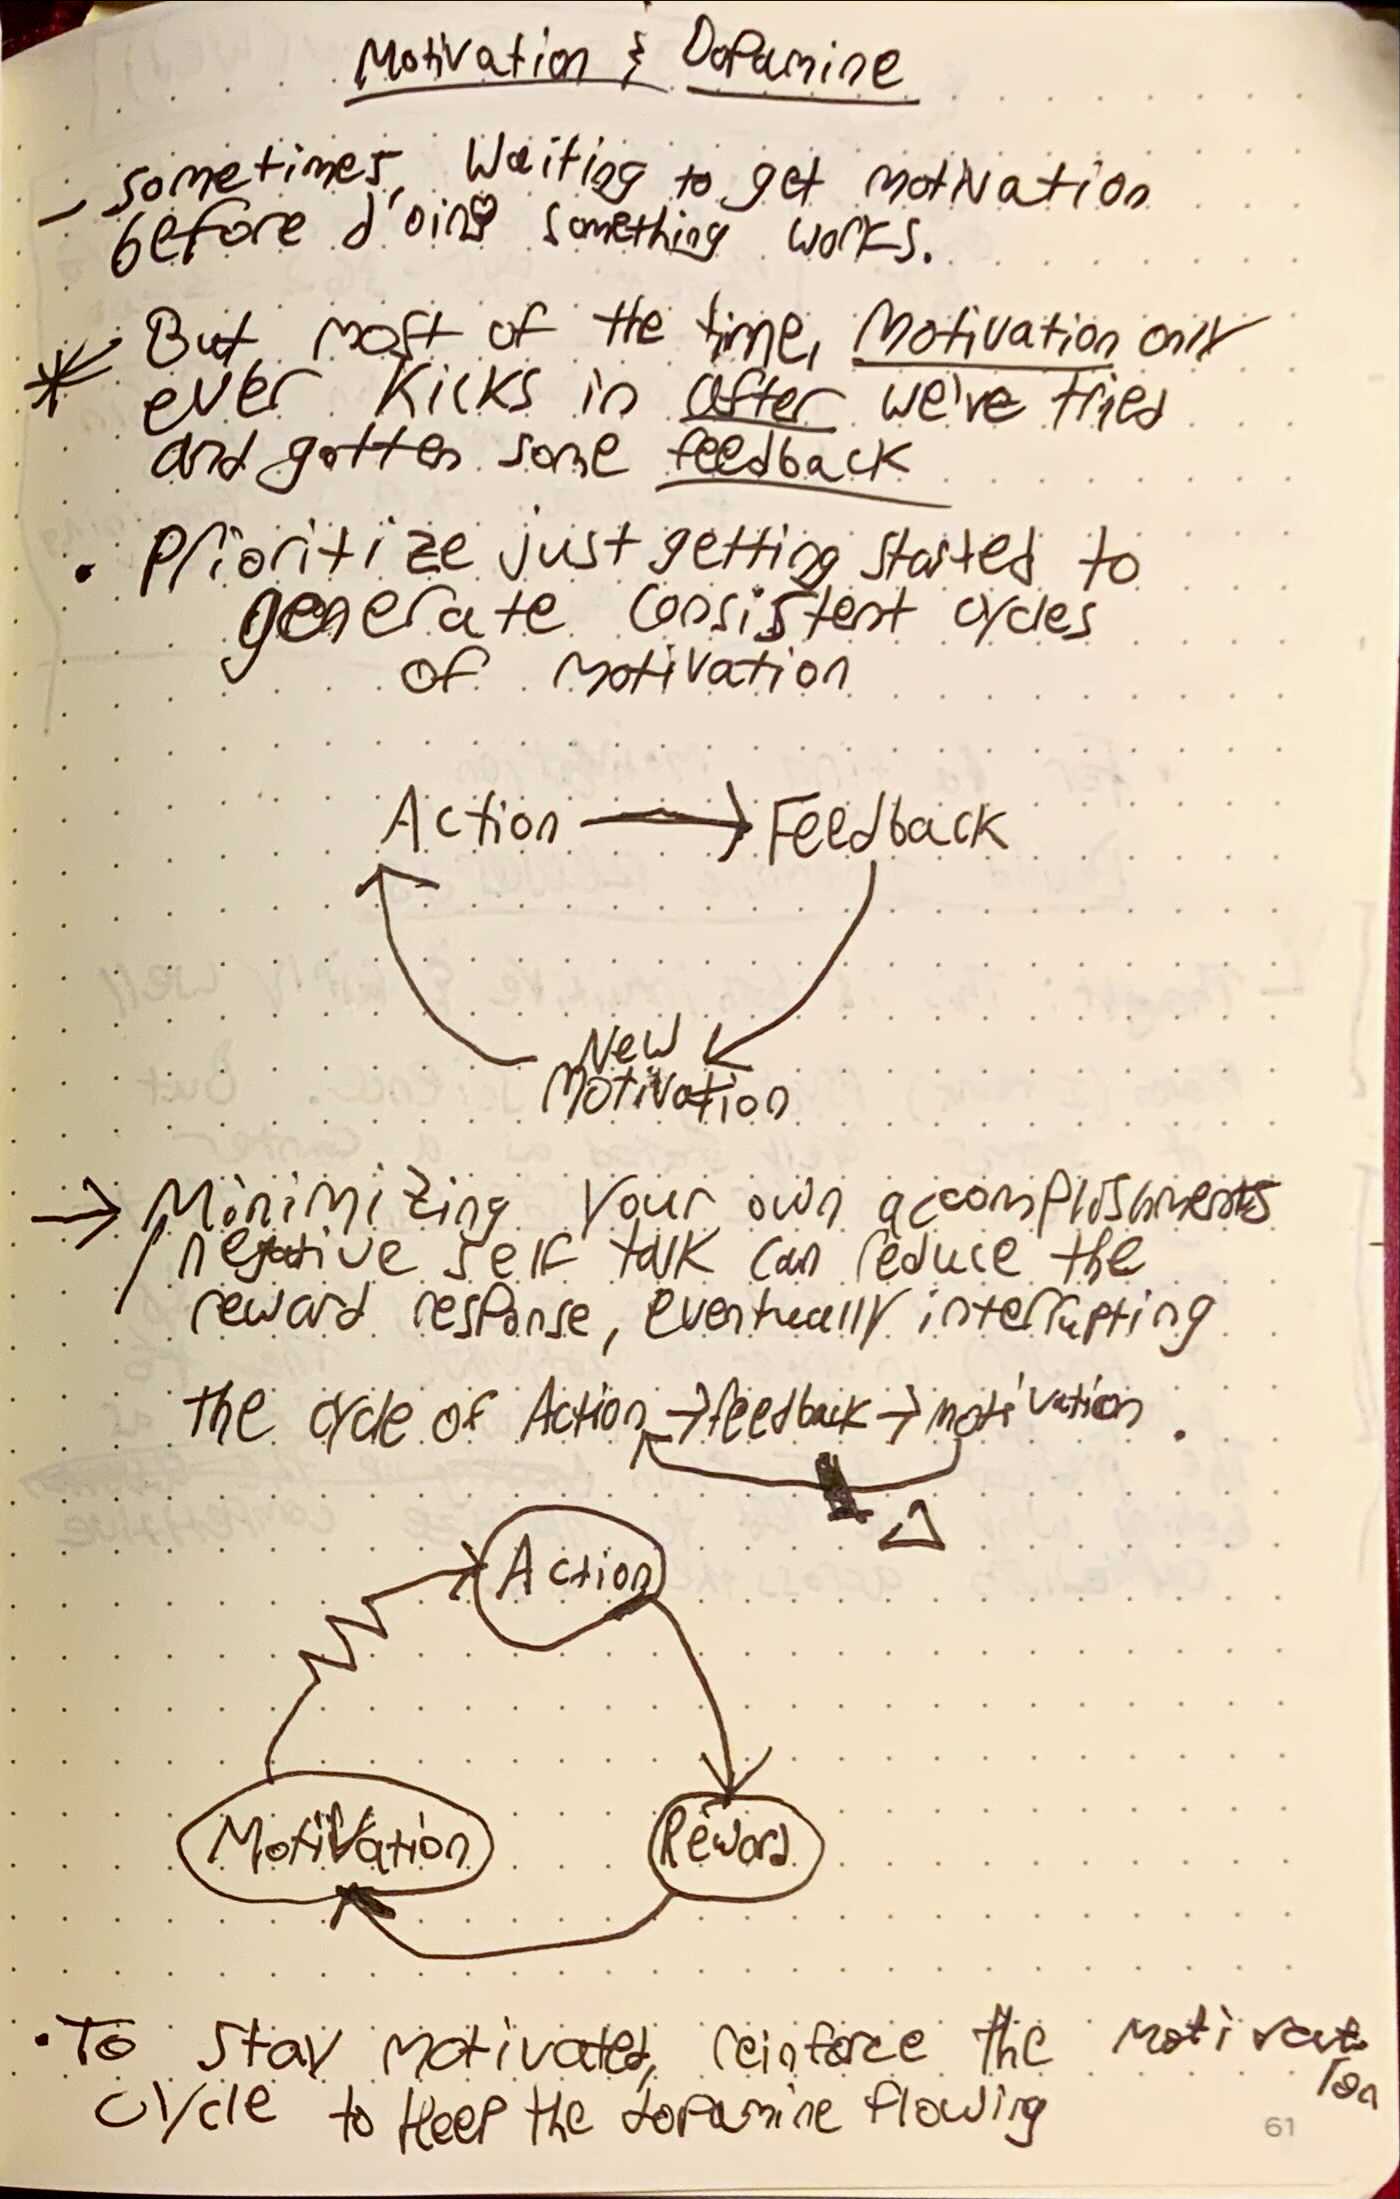 Motivation & Dopamine
- sometimes, waiting to get motivation
before doing something works.
* But most of the time, Motivation only
ever kicks in after we've tried
and gotten some feedback
• Prioritize just getting started to
generate consistent cycles
of motivation
Action → Feedback
New
Motivation
→ Minimizing your own accomplishments
/ negative self talk can reduce the
reward response, eventually interrupting
the cycle of Action → feedback → motivation.
Action
Motivation
Reward
• To stay motivated, reinforce the motivat
ion
cycle to keep the dopamine flowing
61